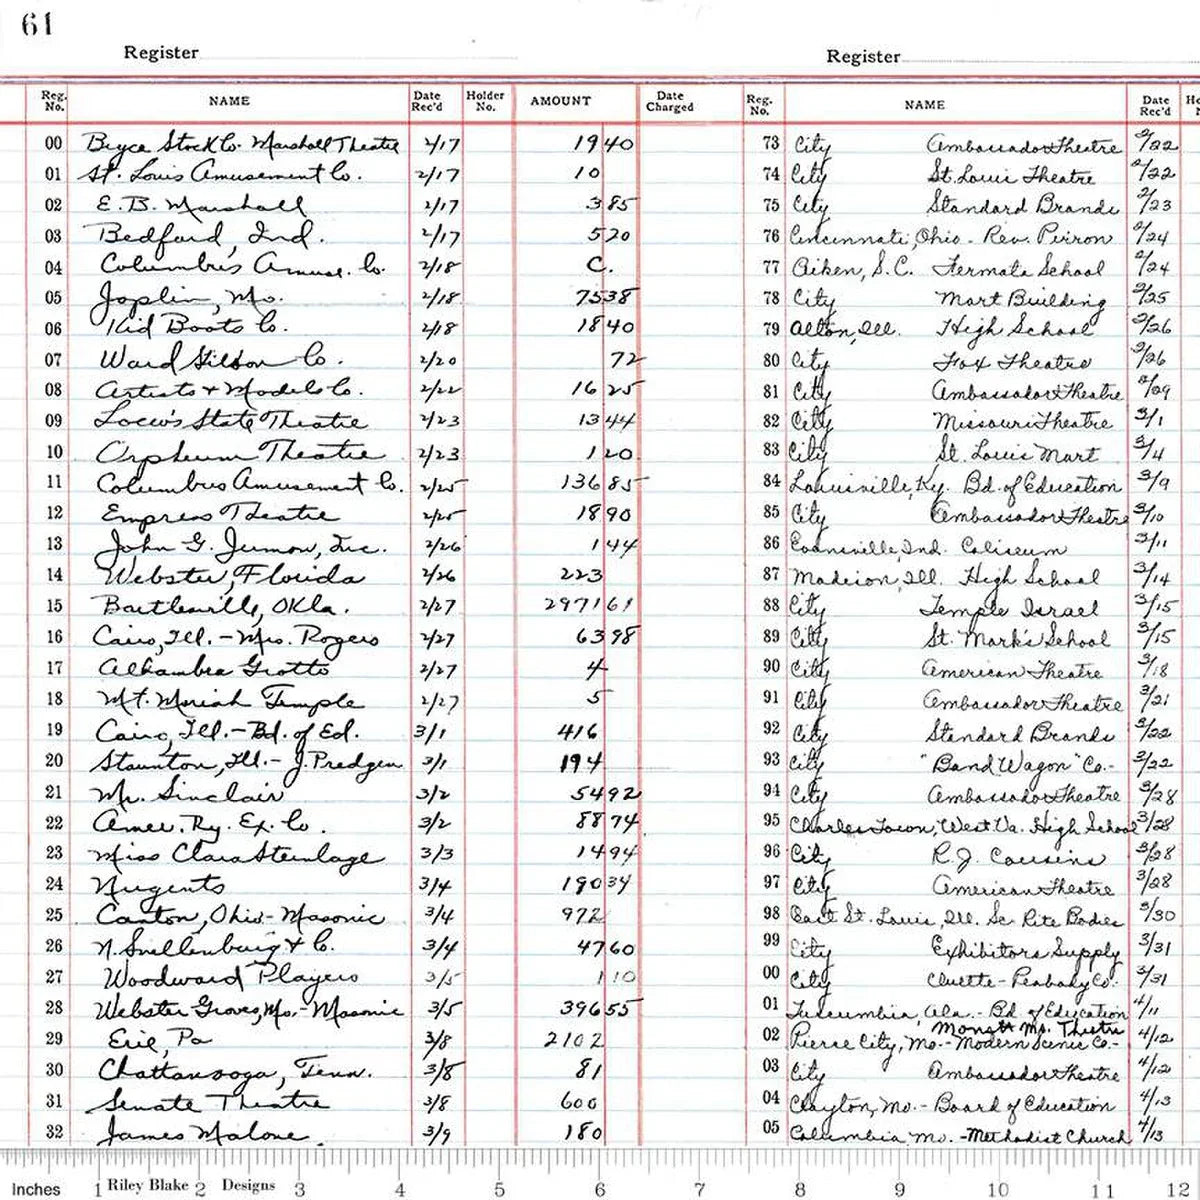 61
Register
Register
Reg. No. NAME Date Rec'd Holder No. AMOUNT Date Charged
Reg. No. NAME Date Rec'd
00 Bryce Stock Co. Marshall Theatre 2/17 19 40
01 St. Louis Amusement Co. 2/17 10
02 E. B. Marshall 2/17 3 85
03 Bedford, Ind. 2/17 520
04 Columbus Amuse. Co. 2/18 C.
05 Joplin, Mo. 2/18 75 38
06 Kid Boots Co. 2/18 18 40
07 Ward Co. 2/20 72
08 Artists & Models Co. 2/22 16 25
09 Loew's State Theatre 2/23 13 44
10 Orpheum Theatre 2/23 1 20
11 Columbus Amusement Co. 2/25 136 85
12 Empress Theatre 2/25 18 90
13 John G. Inc. 2/26 1 44
14 Webster, Florida 2/26 223
15 Bartlesville, Okla. 2/27 2971 61
16 Cairo, Ill. - Mrs. Rogers 2/27 63 98
17 Alhambra Grotto 2/27 4
18 Mt. Moriah Temple 2/27 5
19 Cairo, Ill. - Bd. of Ed. 3/1 416
20 Staunton, Ill. - J. Predgen 3/1 194
21 Mr. Sinclair 3/2 54 92
22 Amer. Ry. Ex. Co. 3/2 88 74
23 Miss Clara Steinlage 3/3 14 94
24 Nugents 3/4 190 34
25 Canton, Ohio - Masonic 3/4 972
26 N. Snellenburg & Co. 3/4 47 60
27 Woodward Players 3/5 1 10
28 Webster Groves, Mo. - Masonic 3/5 396 55
29 Erie, Pa 3/8 2102
30 Chattanooga, Tenn. 3/8 81
31 Senate Theatre 3/8 600
32 James Malone 3/9 180
73 City Ambassador Theatre 2/22
74 City St. Louis Theatre 2/22
75 City Standard Brands 2/23
76 Cincinnati, Ohio - Rev. 2/24
77 Aiken, S.C. Fermata School 2/24
78 City Mart Building 2/25
79 Alton, Ill. High School 2/26
80 City Fox Theatre 2/26
81 City Ambassador Theatre 2/29
82 City Missouri Theatre 3/1
83 City St. Louis Mart 3/4
84 Louisville, Ky. Bd. of Education 3/9
85 City Ambassador Theatre 3/10
86 Evansville, Ind. Coliseum 3/11
87 Madison, Ill. High School 3/14
88 City Temple Israel 3/15
89 City St. Mark's School 3/15
90 City American Theatre 3/18
91 City Ambassador Theatre 3/21
92 City Standard Brands 3/22
93 City "Band Wagon" Co.- 3/22
94 City Ambassador Theatre 3/28
95 Charles Town, West Va. High School 3/28
96 City R. J. Cousins 3/28
97 City American Theatre 3/28
98 East St. Louis, Ill. Sc. Rite Bodies 3/30
99 City Exhibitors Supply 3/31
00 City Cluette - Peabody Co. 3/31
01 Tuscumbia, Ala. - Bd. of Education 4/11
Mo. Theatre
02 Pierce City, Mo. - Modern Scenic Co.- 4/12
03 City Ambassador Theatre 4/12
04 Clayton, Mo. - Board of Education 4/13
05 Columbia Mo. - Methodist Church 4/13
Inches 1 Riley Blake 2 Designs 3 4 5 6 7 8 9 10 11 12